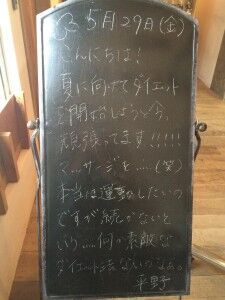 5月29日(金)
こんにちは!
夏に向けてダイエット
を開始しようと今、
頑張ってます!!!!!
マッサージを……(笑)
本当は運動もしたいの
ですが続かないと
いう……何か素敵な
ダイエット法ないのかなぁ。
平野